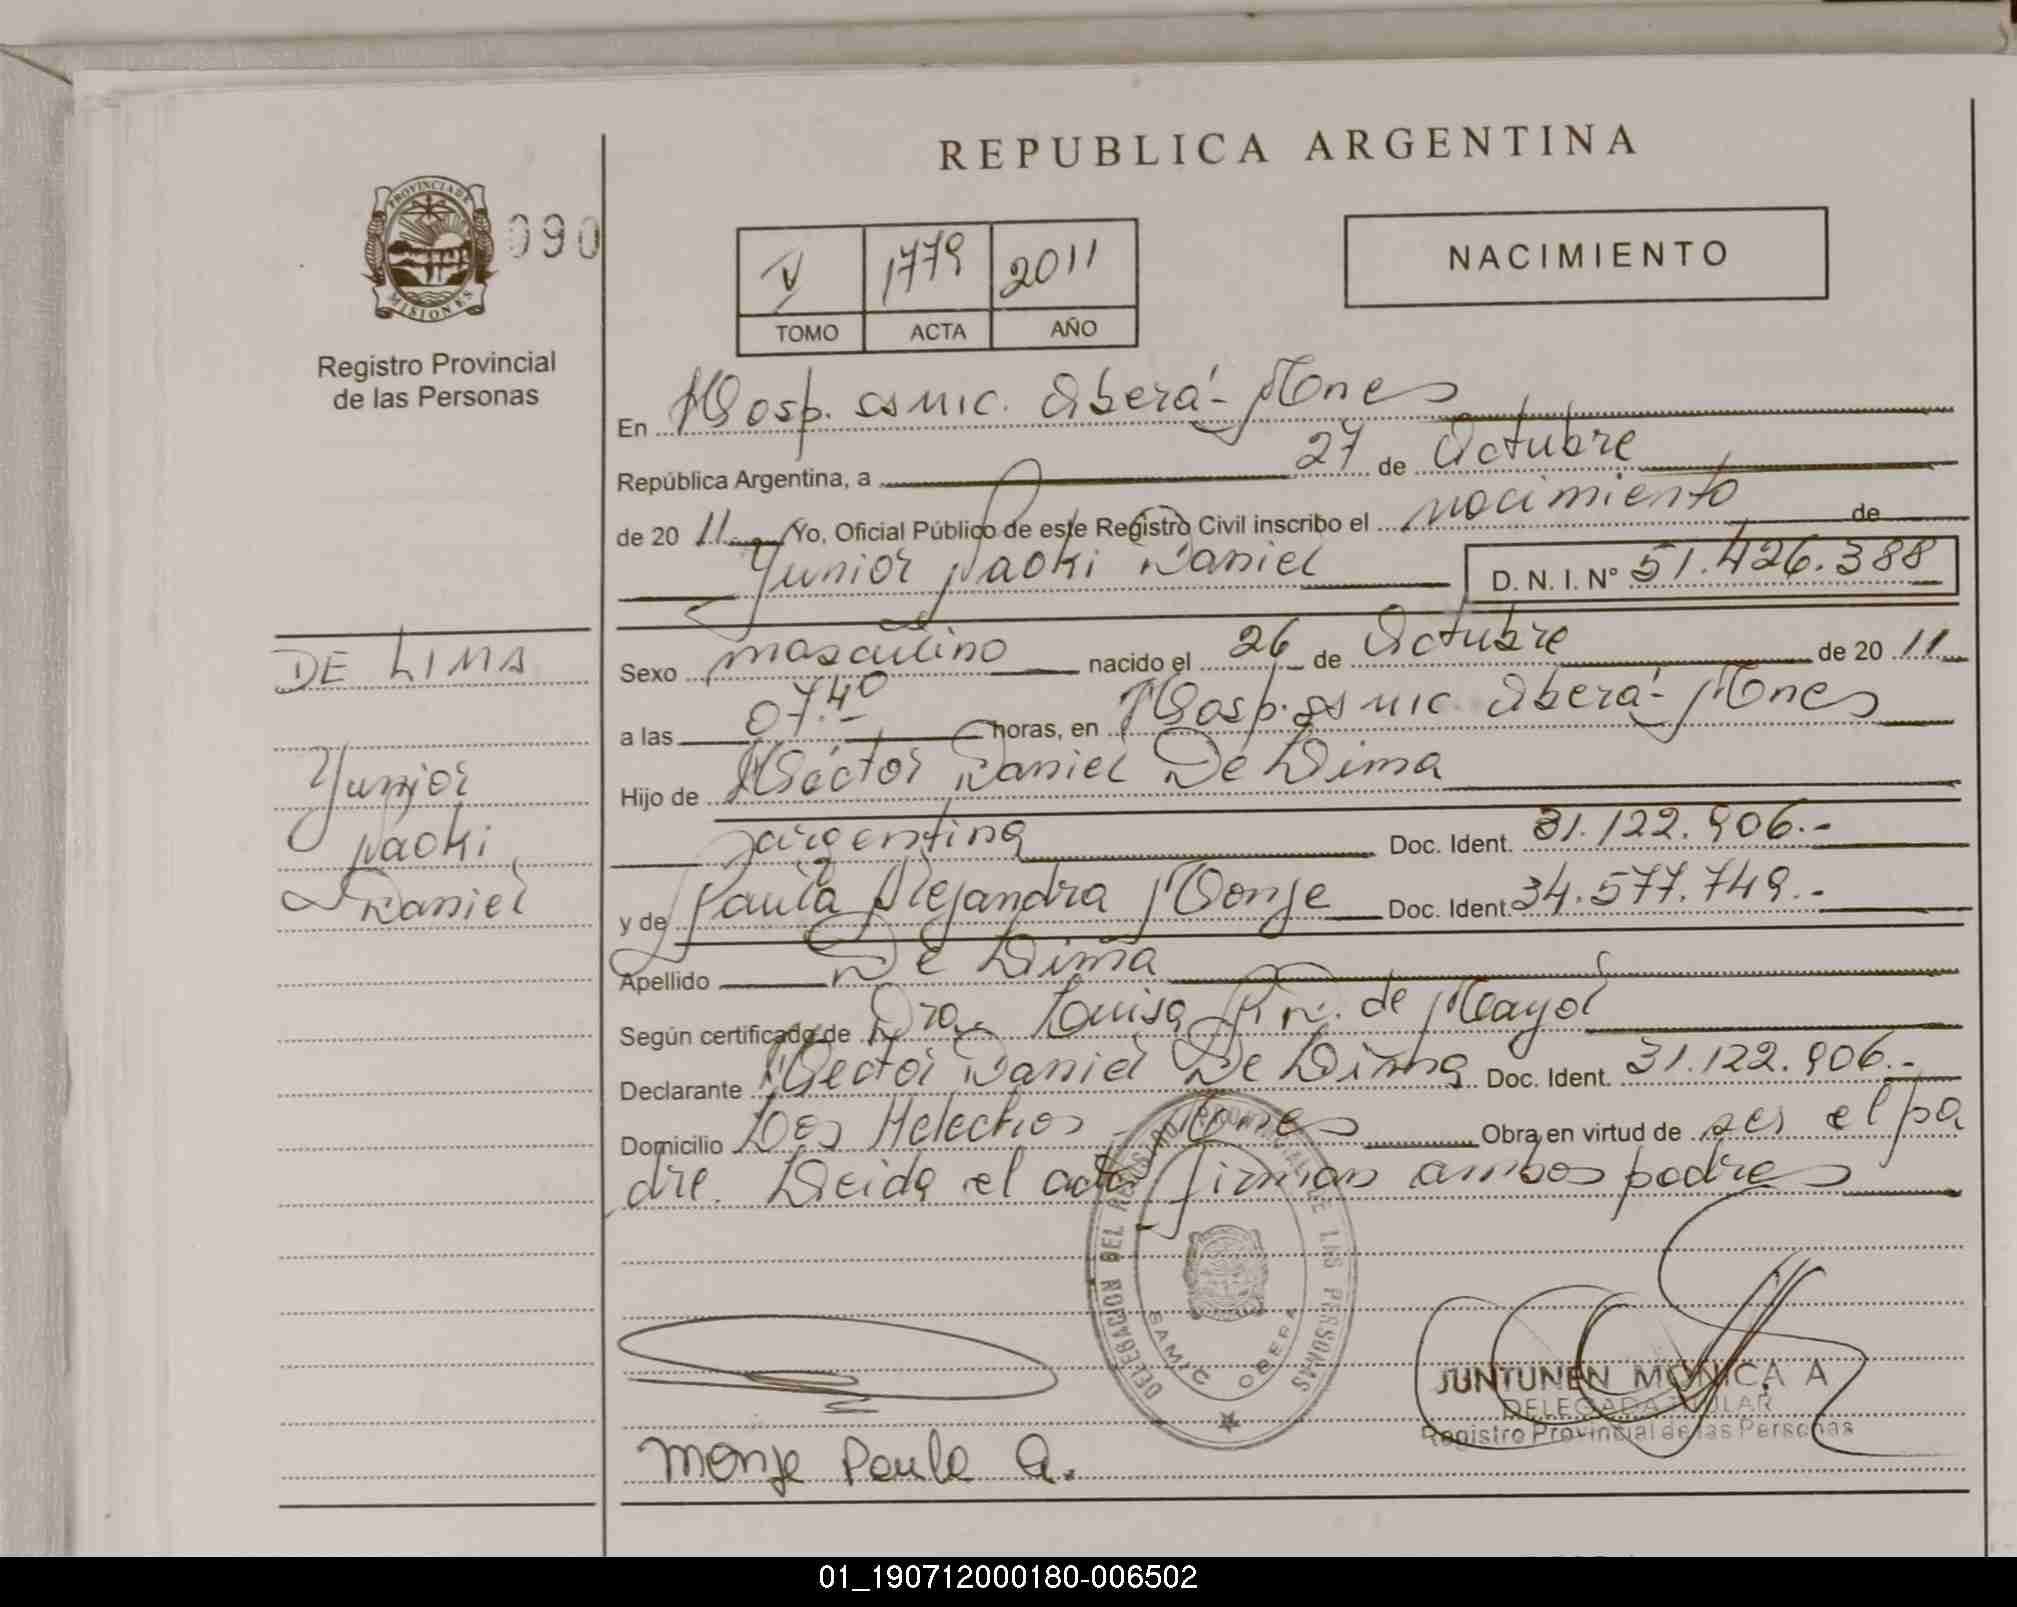 REPUBLICA ARGENTINA
PROVINCIA DE MISIONES
090
Registro Provincial
de las Personas
V 1779 2011
TOMO ACTA AÑO
NACIMIENTO
En Hosp. Samic. Oberá - Mnes
República Argentina, a 27 de Octubre
de 20 11 Yo, Oficial Público de este Registro Civil inscribo el nacimiento de
Yunior Naoki Daniel D. N. I. Nº 51.426.388
DE LIMA
Yunior
Naoki
Daniel
Sexo masculino nacido el 26 de Octubre de 20 11
a las 07.40 horas, en Hosp. Samic. Oberá - Mnes
Hijo de Héctor Daniel De Lima
argentina Doc. Ident. 31.122.906.-
y de Paula Alejandra Monje Doc. Ident. 34.577.749.-
Apellido De Lima
Según certificado de Dra. Luisa de Mayol
Declarante Hector Daniel De Lima Doc. Ident. 31.122.906.-
Domicilio Los Helechos - Mnes Obra en virtud de ser el pa
dre. Leida el acta firman ambos padres
DELEGACION DEL REGISTRO PROVINCIAL DE LAS PERSONAS
SAMIC OBERA
JUNTUNEN MONICA A
DELEGADA TITULAR
Registro Provincial de las Personas
Monje Paula A.
01_190712000180-006502